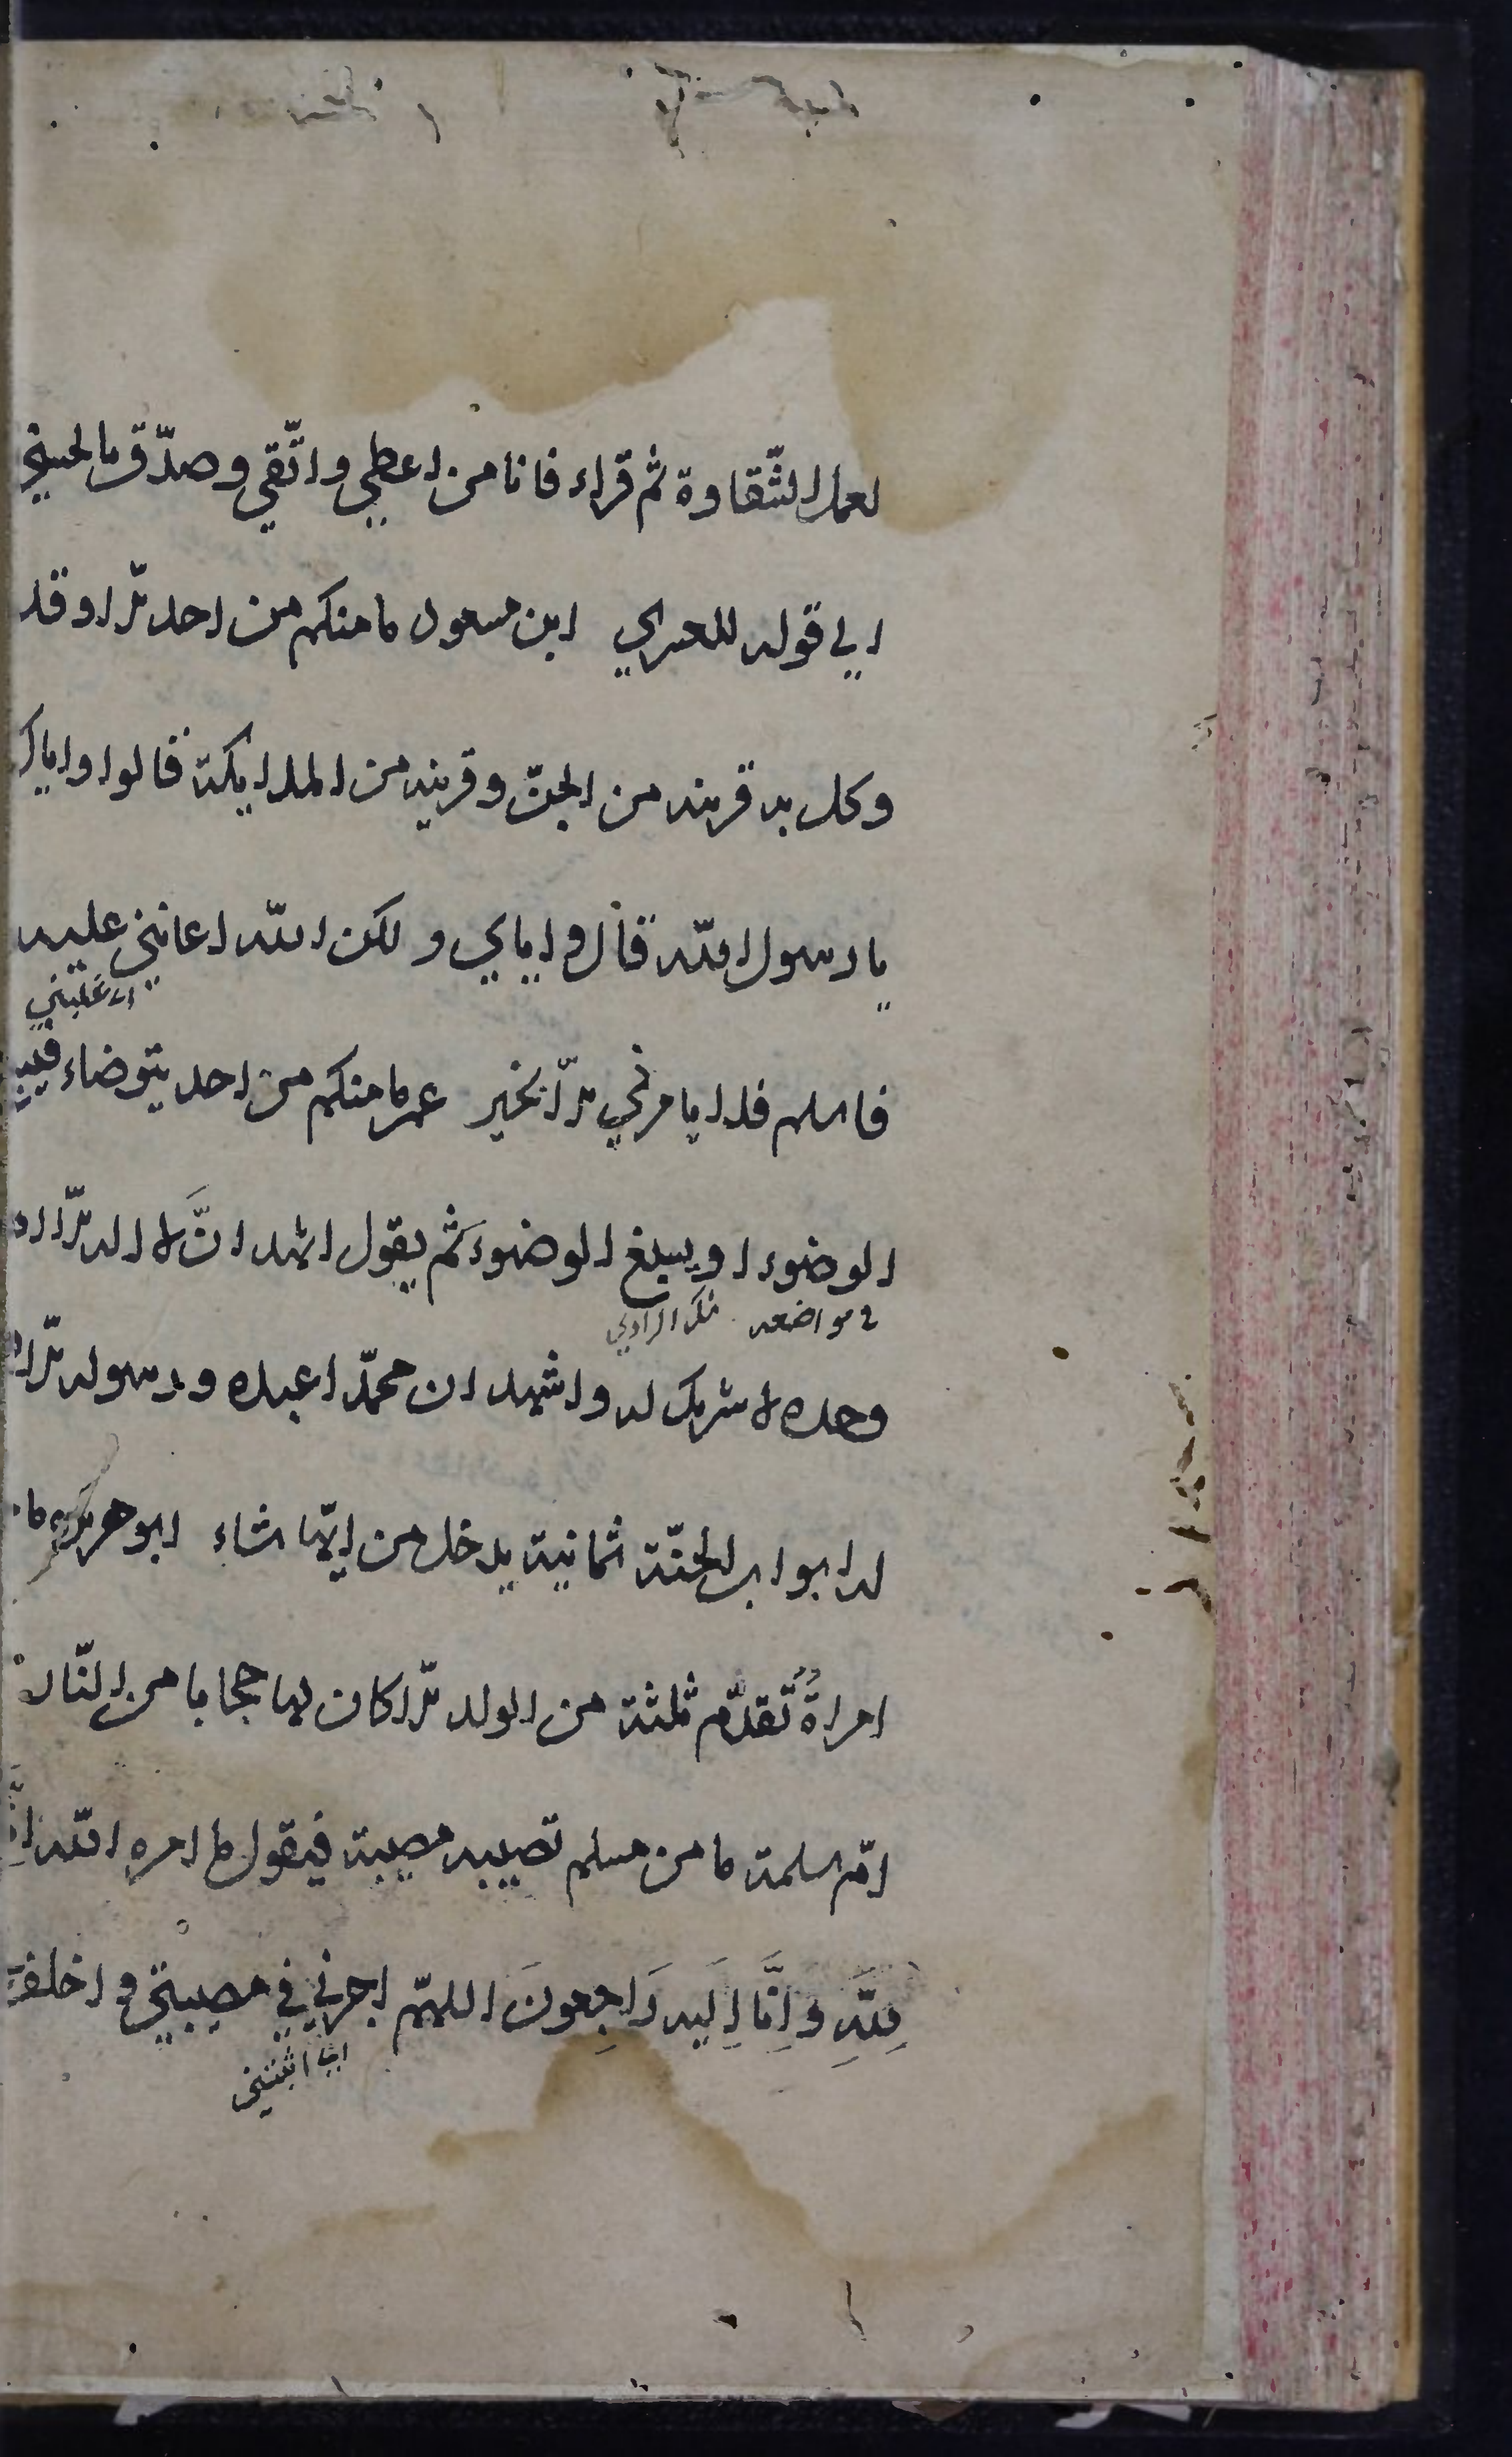 لعمل الشّقاوة ثم قراء فاما من اعطي واتّقي وصدّق بالحسني
الي قوله للعسري ابن مسعود ما منكم من احد الّا وقد
وكل به قرينه من الجنّ وقرينه من الملايكة قالوا واياك
يا رسول الله قال واياي ولكن الله اعانني عليه
اي غلبني
فاسلم فلا يامرني الّا بخير عمر ما منكم من احد يتوضاء فيبلغ
الوضوء او يسبغ الوضوءَ ثم يقول اشهد انَّ لا اله الّا الله
في مواضعه شك الراوي
وحده لا شريك له واشهد ان محمّدا عبده ورسوله الّا
له ابواب الجنّة ثمانية يدخل من ايّها شاء ابو هريرة ما
امراةٌ تُقدّم ثلثة من الولد الّا كان لها حجابا من النّار
امّ سلمة ما من مسلم تصيبه مصيبة فيقول ما امره الله اِنَّا
لِلَّهِ وَاِنَّا اِلَيهِ رَاجِعونَ اللهمّ اجرني في مصيبتي واخلف
اي اثبني